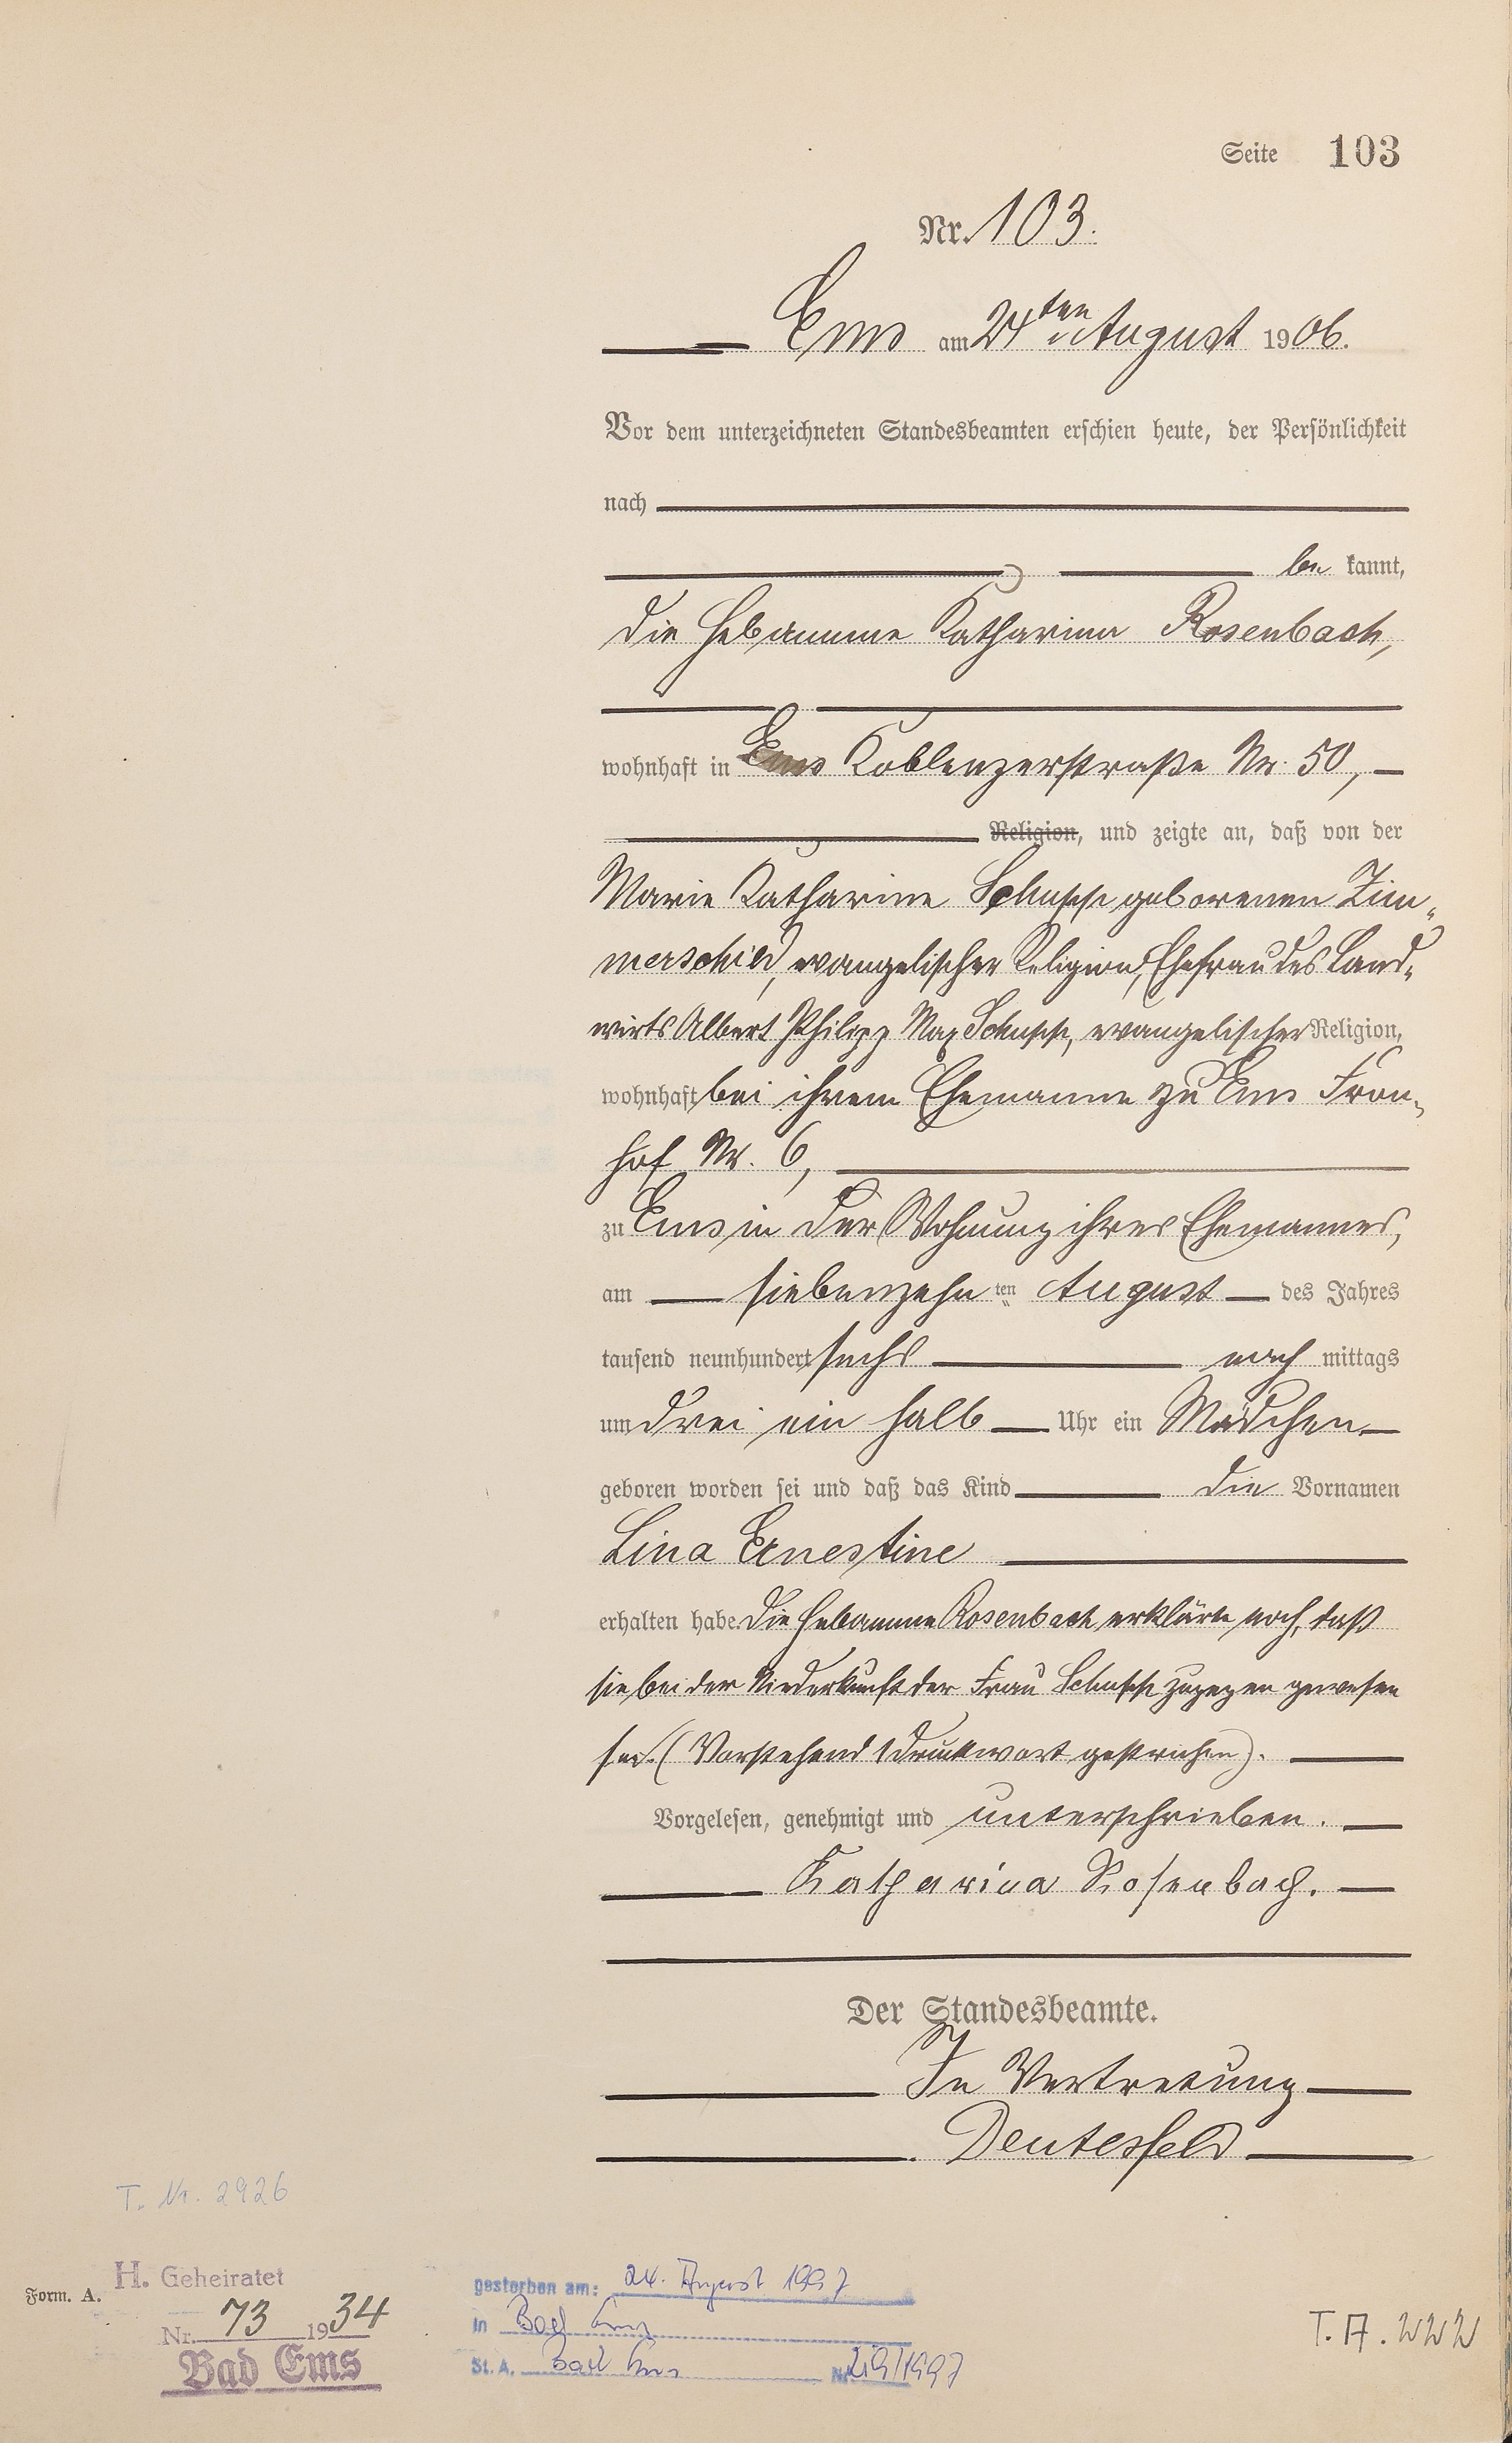 Seite 103
Nr. 103.
Ems am 24ten August 1906.
Vor dem unterzeichneten Standesbeamten erschien heute, der Persönlichkeit
nach
be kannt,
die Hebamme Katharina Rosenbach,
wohnhaft in Ems Koblenzerstraße Nr. 50,
Religion, und zeigte an, daß von der
Marie Katharine Schupp geborenen Zim-
merschied, evangelischer Religion, Ehefrau des Land-
wirts Albert Philipp Max Schupp, evangelischer Religion,
wohnhaft bei ihrem Ehemanne zu Ems Fron-
hof Nr. 6,
zu Ems in der Wohnung ihres Ehemannes,
am siebenzehn ten August des Jahres
tausend neunhundert sechs nach mittags
um drei ein halb Uhr ein Mädchen
geboren worden sei und daß das Kind die Vornamen
Lina Ernestine
erhalten habe. Die Hebamme Rosenbach erklärte noch, daß
sie bei der Niederkunft der Frau Schupp zugegen gewesen
sei. (Vorstehend 1 Druckwort gestrichen).
Vorgelesen, genehmigt und unterschrieben.
Katharina Rosenbach.
Der Standesbeamte.
In Vertretung
Deutesfeld
T. Nr. 2926
Form. A.
H. Geheiratet
Nr. 73 1934
Bad Ems
gestorben am: 24. August 1997
in Bad Ems
St. A. Bad Ems Nr. 219/1997
T. A.